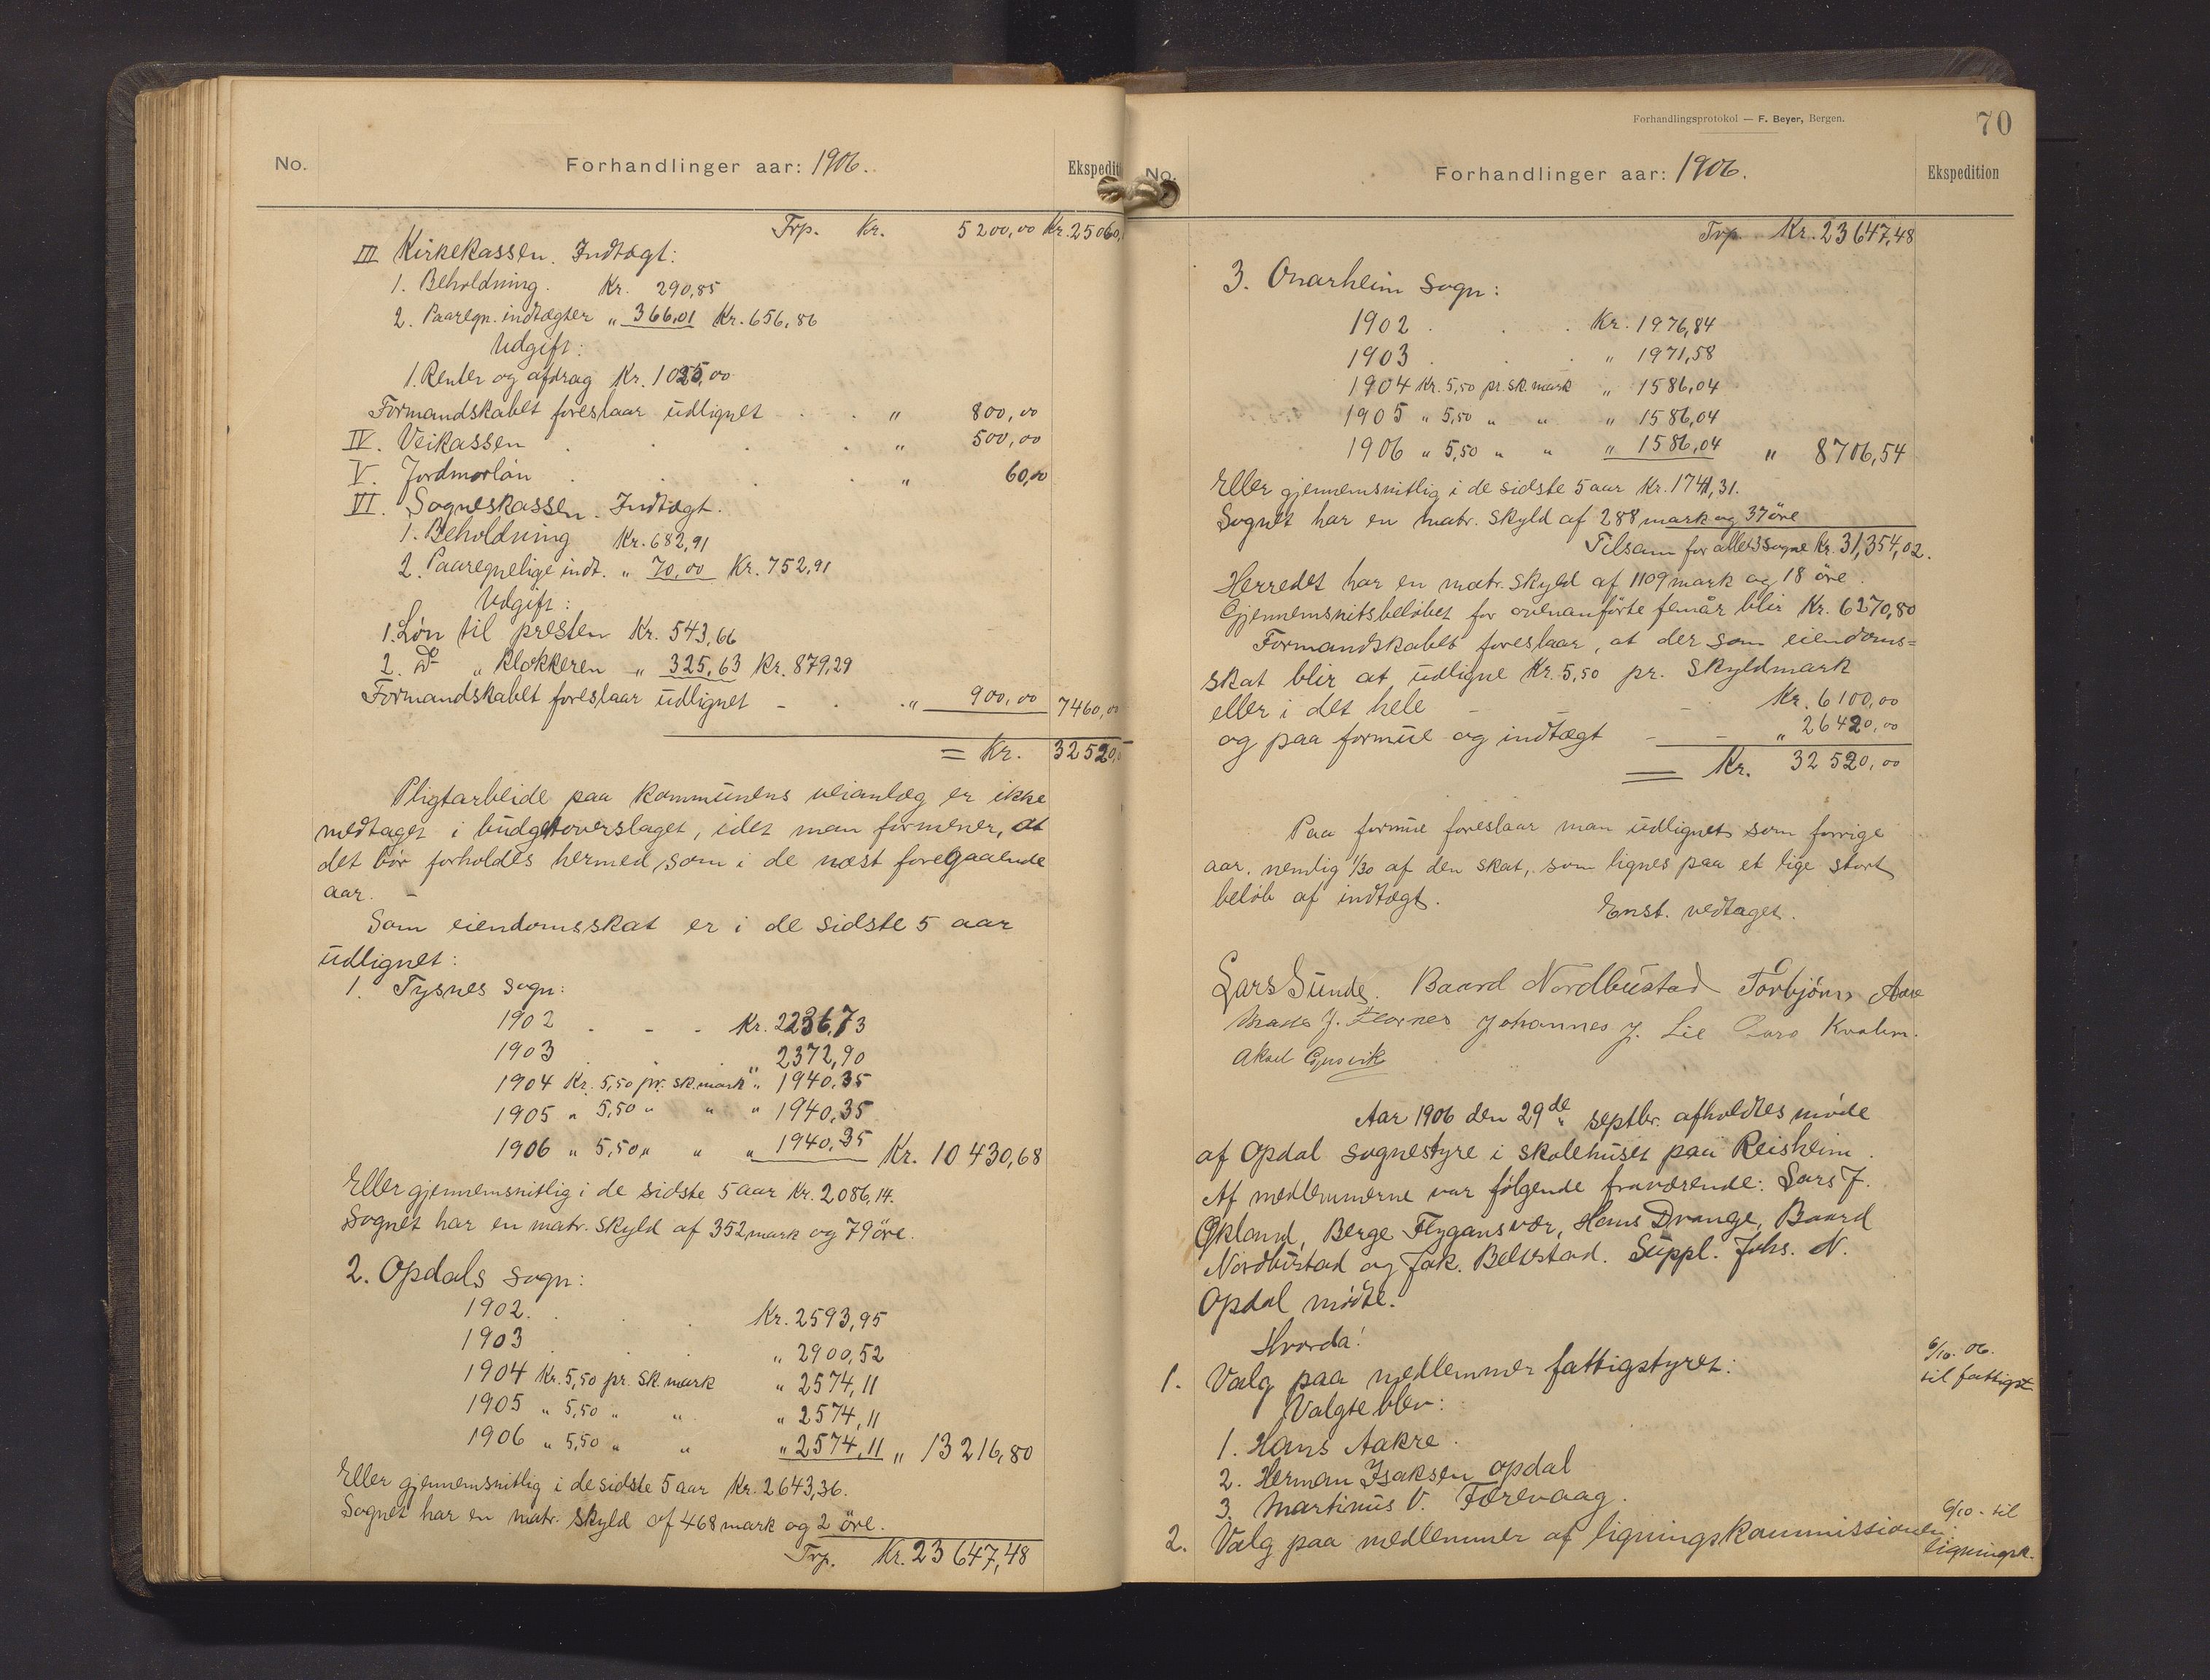 No.
Forhandlinger aar: 1906.
Ekspedit
Trp. Kr. 5200,00 Kr. 25060,
III Kirkekassen. Indtægt:
1. Beholdning. Kr. 290,85
2. Paaregn. indtægter " 366,01 Kr. 656,86
Udgift:
1. Renter og afdrag Kr. 1025,00
Formandskabet foreslaar udlignet " 800,00
IV. Veikassen " 500,00
V. Jordmorløn " 60,00
VI. Sogneskassen. Indtægt.
1. Beholdning Kr. 682,91
2. Paaregnelige indt. " 70,00 Kr. 752,91
Udgift:
1. Løn til presten Kr. 543,66
2. Do " klokkeren " 325,63 Kr. 879,29
Formandskabet foreslaar udlignet " 900,00 7460,00
= Kr. 32520,
Pligtarbeide paa kommunens veianlæg er ikke
medtaget i budgetoverslaget, idet man formener, at
det bør forholdes hermed, som i de næst foregaaende
aar. -
Som eiendomsskat er i de sidste 5 aar
udlignet:
1. Tysnes sogn:
1902 . - - Kr. 2236,73
1903 . . " 2372,90
1904 Kr. 5,50 pr. sk. mark " 1940,35
1905 " 5,50 " " " 1940,35
1906 " 5,50 " " " 1940,35 Kr. 10430,68
Eller gjennemsnitlig i de sidste 5 aar Kr. 2086,14.
Sognet har en matr. skyld af 352 mark og 79 øre.
2. Opdals sogn:
1902. . . Kr. 2593,95
1903 . . " 2900,52
1904 Kr. 5,50 pr. sk. mark " 2574,11
1905 " 5,50 " " " 2574,11
1906 " 5,50 " " " 2574,11 " 13216,80
Eller gjennemsnitlig i de sidste 5 aar Kr. 2643,36.
Sognet har en matr. skyld af 468 mark og 2 øre.
Trp. Kr. 23647,48
Forhandlingsprotokol — F. Beyer, Bergen.
70
No.
Forhandlinger aar: 1906.
Ekspedition
Trp. Kr. 23647,48
3. Onarheim sogn:
1902 . . . Kr. 1976,84
1903 . . " 1971,58
1904 Kr. 5,50 pr. sk. mark " 1586,04
1905 " 5,50 " " " 1586,04
1906 " 5,50 " " " 1586,04 " 8706,54
Eller gjennemsnitlig i de sidste 5 aar Kr. 1741,31.
Sognet har en matr. skyld af 288 mark og 37 øre
Tilsam for alle 3 sogne Kr. 31,354,02.
Herredet har en matr. skyld af 1109 mark og 18 øre.
Gjennemsnitsbeløbet for ovenanførte femår blir Kr. 6270,80
Formandskabet foreslaar, at der som eiendoms=
skat blir at udligne Kr. 5,50 pr. skyldmark
eller i det hele - - Kr. 6100,00
og paa formue og indtægt - - " 26420,00
= Kr. 32520,00
Paa formue foreslaar man udlignet som forrige
aar, nemlig 1/30 af den skat, som lignes paa et lige stort
beløb af indtægt.
Enst. vedtaget.
Lars Sunde. Baard Nordbustad Torbjørn Aare
Mads J. Flornes Johannes J. Lie Lars Kvalem.
Aksel Gjøsvik
Aar 1906 den 29de septbr. afholdtes møde
af Opdal sognestyre i skolehuset paa Reisheim.
Af medlemmerne var følgende fraværende: Lars J.
Økland, Berge Flygansvær, Hans Drange, Baard
Nordbustad og Jak. Beltestad. Suppl. Johs. N.
Opdal mødte.
Hvorda!
1. Valg paa medlemmer fattigstyret:
6/10. 06.
til fattigst.
Valgte blev:
1. Hans Aakre.
2. Herman Isaksen Opdal
3. Martinus V. Færevaag.
2. Valg paa medlemmer af ligningskommissionen.
6/10 - til
ligningsk.